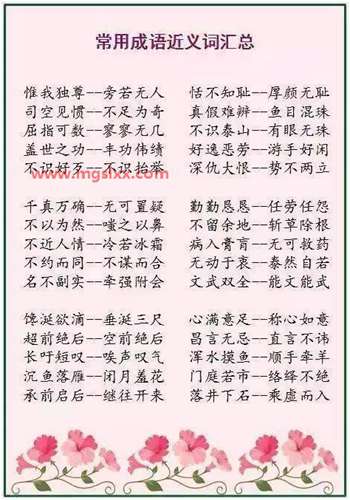 常用成语近义词汇总
惟我独尊--旁若无人
司空见惯--不足为奇
屈指可数--寥寥无几
盖世之功--丰功伟绩
不识好歹--不识抬举
www.mgslxx.com
千真万确--无可置疑
不以为然--嗤之以鼻
不近人情--冷若冰霜
不约而同--不谋而合
名不副实--牵强附会
馋涎欲滴--垂涎三尺
超前绝后--空前绝后
长吁短叹--唉声叹气
沉鱼落雁--闭月羞花
承前启后--继往开来
恬不知耻--厚颜无耻
真假难辨--鱼目混珠
不识泰山--有眼无珠
好逸恶劳--游手好闲
深仇大恨--势不两立
勤勤恳恳--任劳任怨
不留余地--斩草除根
病入膏肓--无可救药
无动于衷--泰然自若
文武双全--能文能武
心满意足--称心如意
昌言无忌--直言不讳
浑水摸鱼--顺手牵羊
门庭若市--络绎不绝
落井下石--乘虚而入